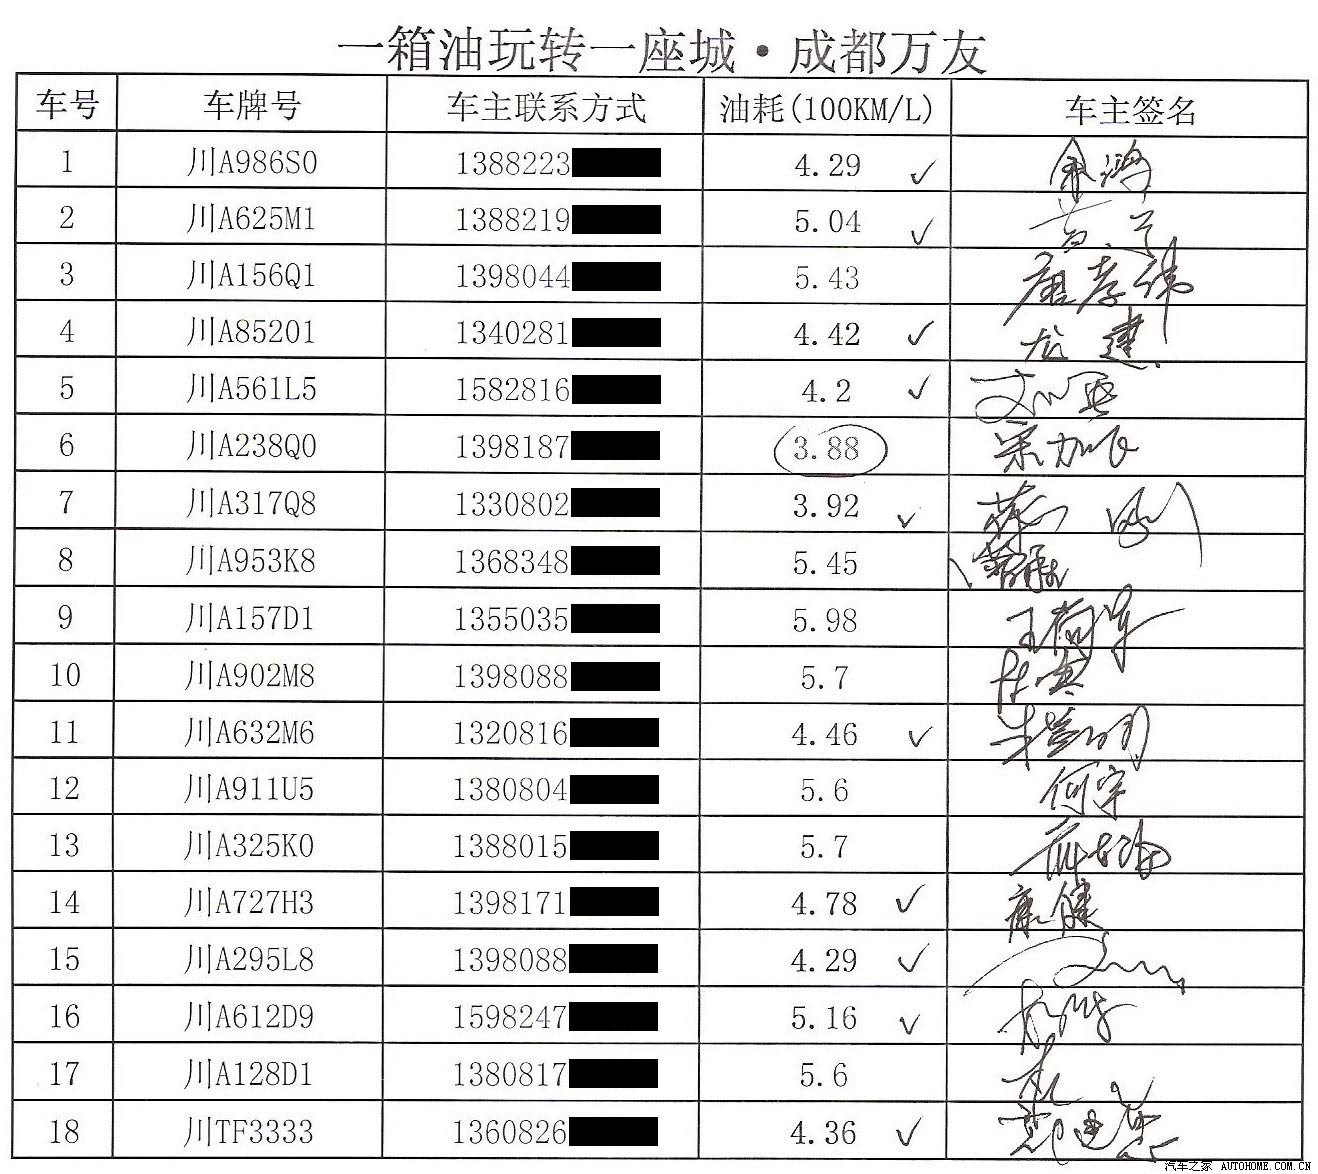 一箱油玩转一座城·成都万友
车号 车牌号 车主联系方式 油耗(100KM/L) 车主签名
1 川A986S0 1388223 4.29 ✓ 余鸿
2 川A625M1 1388219 5.04 ✓
3 川A156Q1 1398044 5.43 唐孝伟
4 川A85201 1340281 4.42 ✓ 龙建
5 川A561L5 1582816 4.2 ✓
6 川A238Q0 1398187 3.88
7 川A317Q8 1330802 3.92 ✓
8 川A953K8 1368348 5.45
9 川A157D1 1355035 5.98
10 川A902M8 1398088 5.7
11 川A632M6 1320816 4.46 ✓
12 川A911U5 1380804 5.6 何宇
13 川A325K0 1388015 5.7
14 川A727H3 1398171 4.78 ✓ 康健
15 川A295L8 1398088 4.29 ✓
16 川A612D9 1598247 5.16 ✓
17 川A128D1 1380817 5.6
18 川TF3333 1360826 4.36 ✓
汽车之家 AUTOHOME.COM.CN